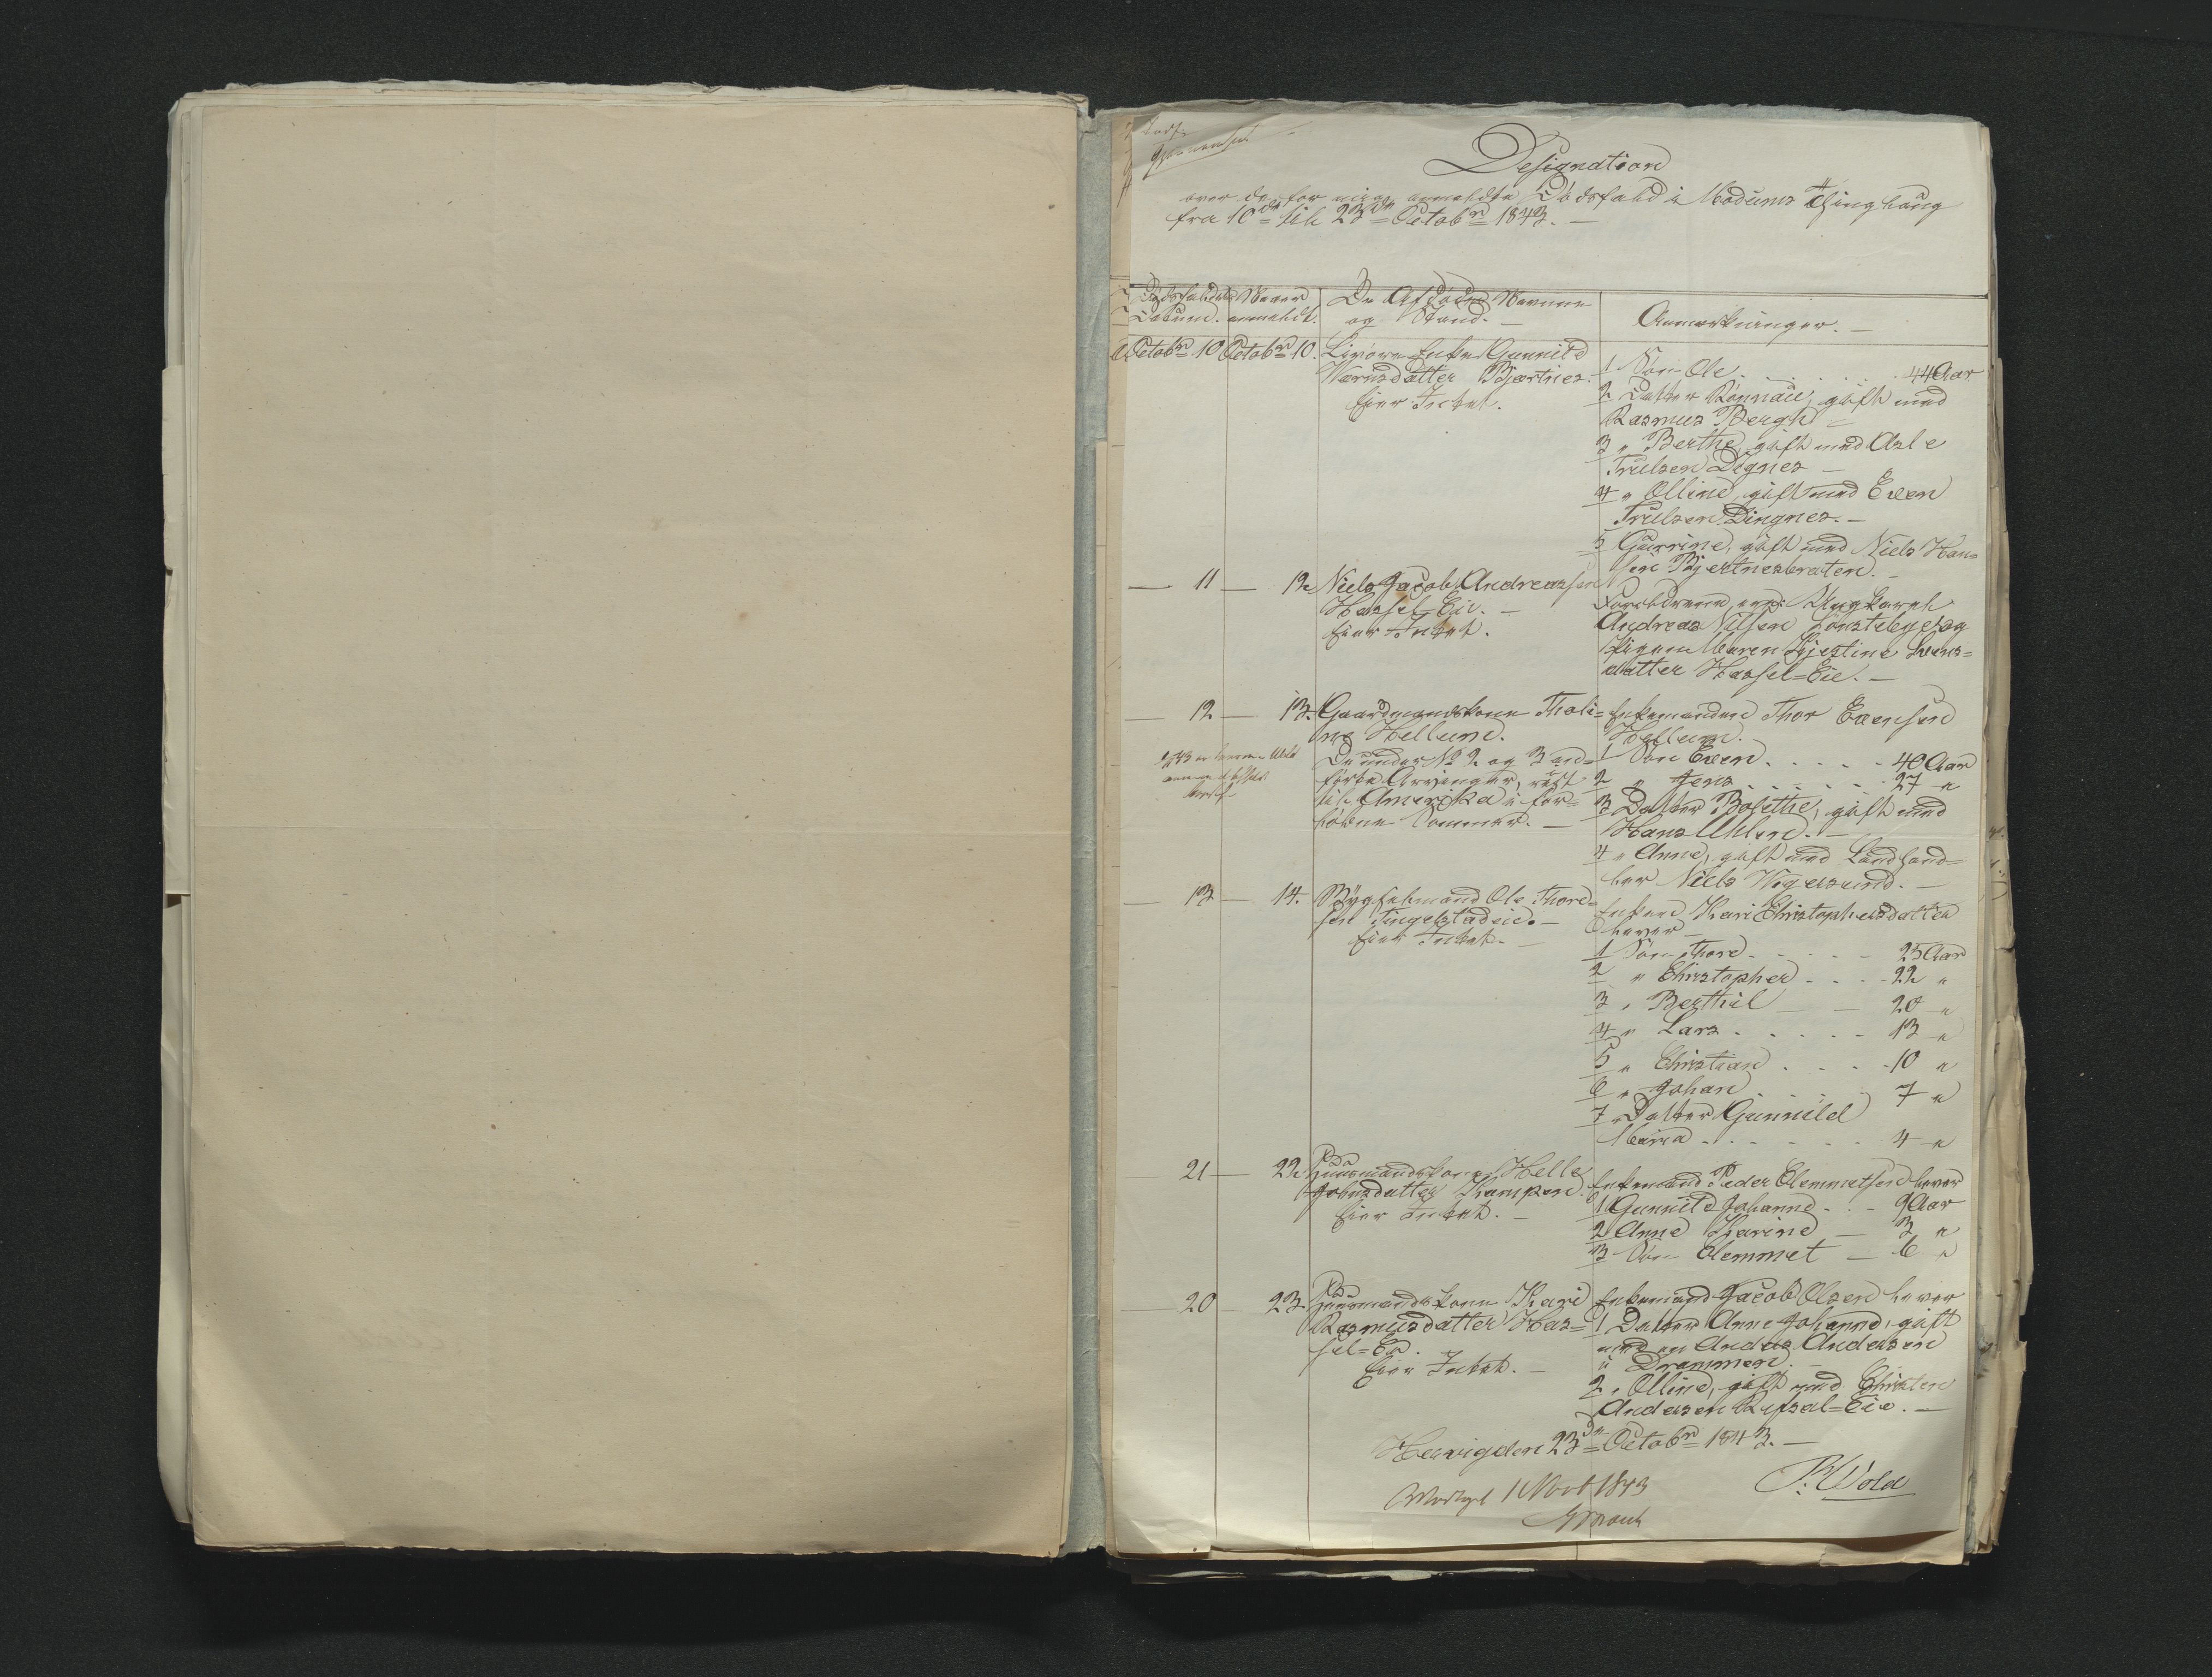 Designation
over de for mig anmeldte Dødsfald i Modums Thinglaug
fra 10de til 23de Octobr 1843. —
Dødsfaldets Datum.
Naar anmeldt.
De Afdødes Navne og Stand. —
Anmærkninger. —
Octobr 10 Octobr 10. Livøre Enke Gunnild
Wærnsdatter Bjertnes.
Eier Intet.
1 Søn Ole . . . . . 44 Aar
2 Datter Rønnau, gift med
Rasmus Bergh —
3 " Berthe, gift med Asle
Trulsen Dignes —
4 " Olline, gift med Even
Trulsen Dingnes. —
5 Gurrine, gift med Niels Han=
sen Bjertnesbraten. —
— 11 — 12 Niels Jacob Andreassen
Hassel=Eie. —
Eier Intet.
Forældrene ere: Ungkarl
Andreas Nilsen og
Pigen Maren Kjestine
datter Hassel=Eie. —
— 12 — 13. Gaardmandskone Tholi=
ne Hellum.
De under No 2 og 3 an=
førte Arvinger, reist
til Amerika i for=
løbne Sommer. —
Enkemanden Thor Evensen
Hellum.
1 Søn Even . . . . . 40 Aar
2 " Jens . . . . . 27 "
3 Datter Bolethe, gift med
Hans Uhlen. —
4 " Anne, gift med Landhand=
ler Niels Vigersund. —
— 13 — 14. Bygselmand Ole Thord=
sen Tingelstadeie. —
Eier Intet. —
Enken Kari Christophersdatter
lever —
1 Søn Thord . . . . 25 Aar
2 " Christopher . . . . 22 "
3 " Berthil — — 20 "
4 " Lars . . . . . 13 "
5 " Christian . . . . 10 "
6 " Johan . . . . 7 "
7 Datter Gunnild
Maria . . . . . 4 "
— 21 — 22 Huusmandskone Helle
Johnsdatter Kampen.
Eier Intet. —
Enkemand Peder Clemmetsen lever
1 Gunnild Johanne . . 9 Aar
2 Anne Karine — 3 "
3 Søn Clemmet — 6 "
— 20 — 23. Huusmandskone Kari
Rasmusdatter Has=
sel=Eie.
Eier Intet. —
Enkemand Jacob Olsen lever
1 Datter Anne Johanne, gift
med en Anders Andersen
i Drammen. —
2 " Olline, gift med Christen
Andersen Hassel=Eie. —
Hervig den 23de Octobr 1843. —
P. Wold
Modtaget 1 Novb 1843